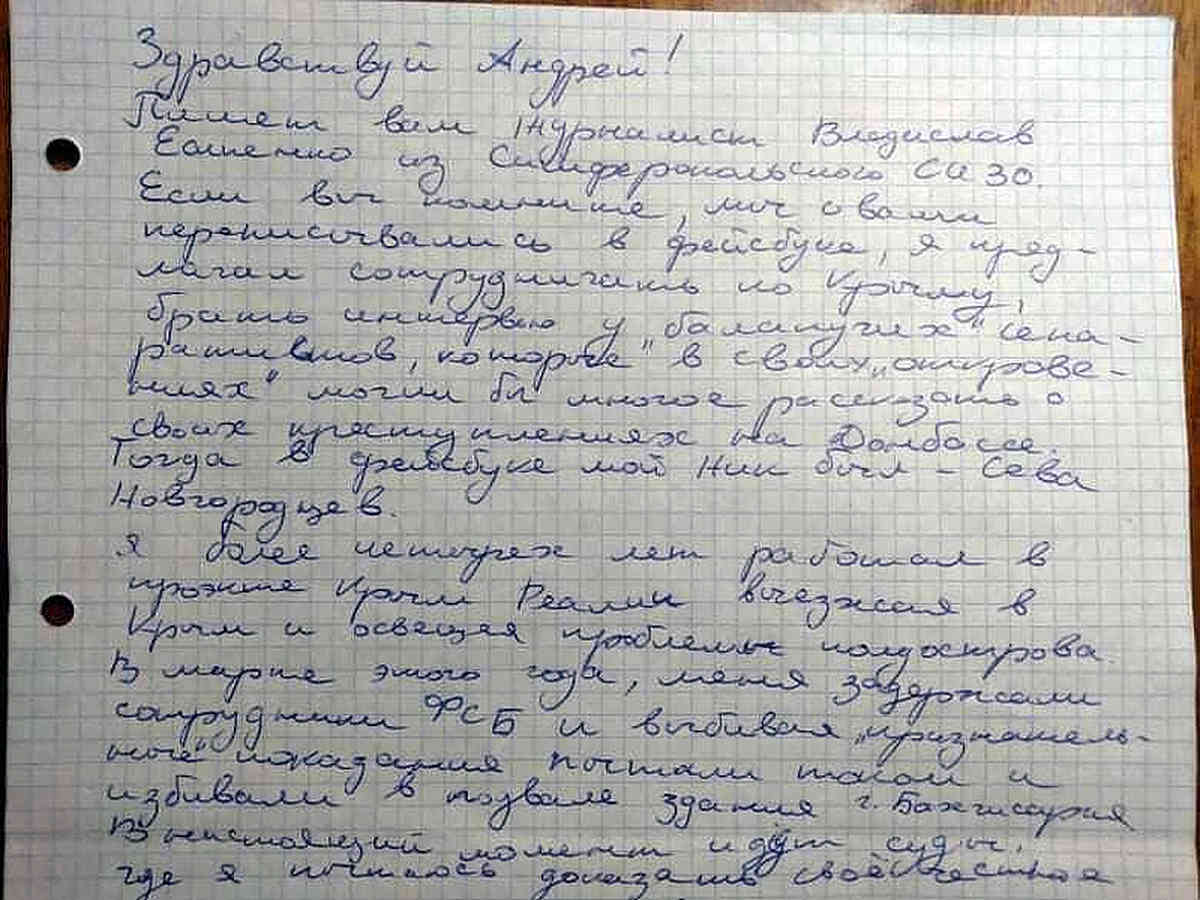 Здравствуй Андрей!
Пишет вам журналист Владислав
Есипенко из Симферопольского СИЗО.
Если вы помните, мы с вами
переписывались в фейсбуке, я пред-
лагал сотрудничать по Крыму,
брать интервью у "балакучих" сепа-
ратистов, которые" в своих "открове-
ниях" могли бы многое рассказать о
своих преступлениях на Донбассе.
Тогда в фейсбуке мой Ник был – Сева
Новгородцев.
Я более четырех лет работал в
проэкте Крым Реалии выезжая в
Крым и освещая проблемы полуострова.
В марте этого года, меня задержали
сотрудники ФСБ и выбивая "признатель-
ные" показания пытали током и
избивали в подвале здания г. Бахчисарая
В настоящий момент идут суды,
где я пытаюсь доказать своё честное